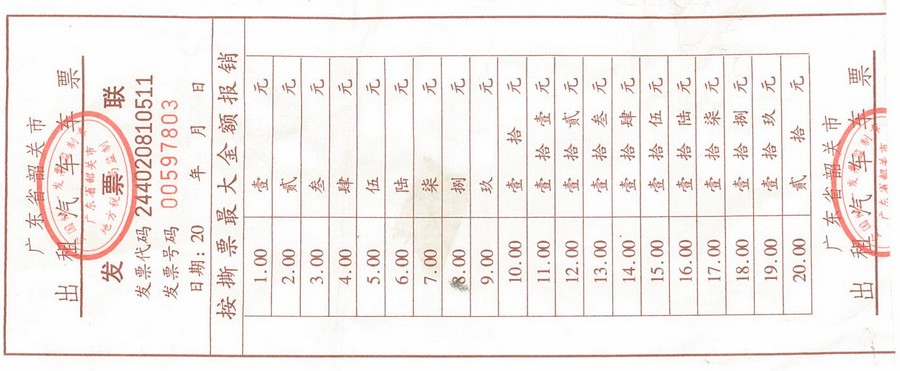 广东省韶关市
出租汽车车票
发票联
发票代码 244020810511
发票号码 00597803
日期：20 年 月 日
按撕票最大金额报销
1.00 壹 元
2.00 贰 元
3.00 叁 元
4.00 肆 元
5.00 伍 元
6.00 陆 元
7.00 柒 元
8.00 捌 元
9.00 玖 元
10.00 壹拾 元
11.00 壹拾壹元
12.00 壹拾贰元
13.00 壹拾叁元
14.00 壹拾肆元
15.00 壹拾伍元
16.00 壹拾陆元
17.00 壹拾柒元
18.00 壹拾捌元
19.00 壹拾玖元
20.00 贰 拾 元
广东省韶关市
出租汽车车票
发票
广东省韶关市
地方税
广东省韶关市